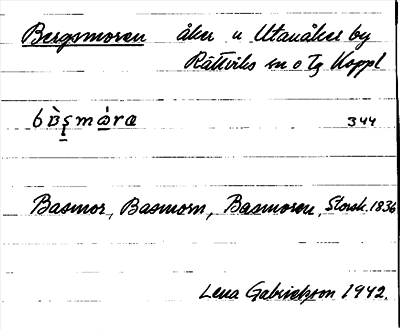 Bergsmoren åker u Utanåker by
Rättviks sn o tg Koppl
344
Basmor, Basmorn, Basmoren, Storsk. 1836
Lena Gabrielsson 1942.